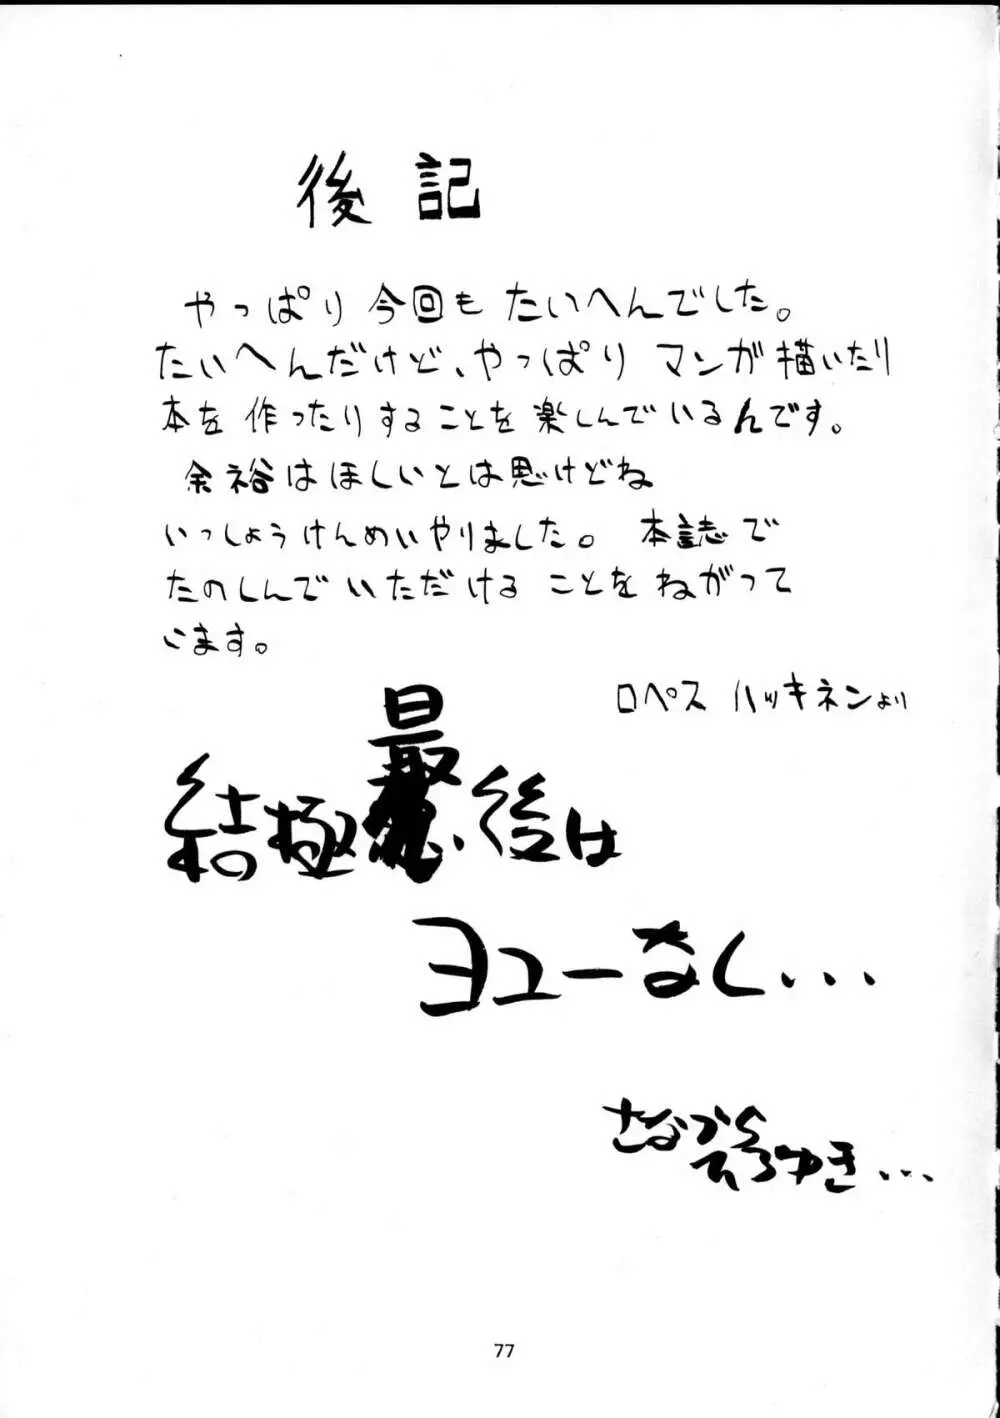 後記
やっぱり今回もたいへんでした。
たいへんだけど、やっぱりマンガ描いたり
本を作ったりすることを楽しんでいるんです。
余裕はほしいとは思けどね
いっしょうけんめいやりました。本誌で
たのしんでいただけることをねがって
います。
ロペス ハッキネンより
結極最後は
ヨユーなく...
77